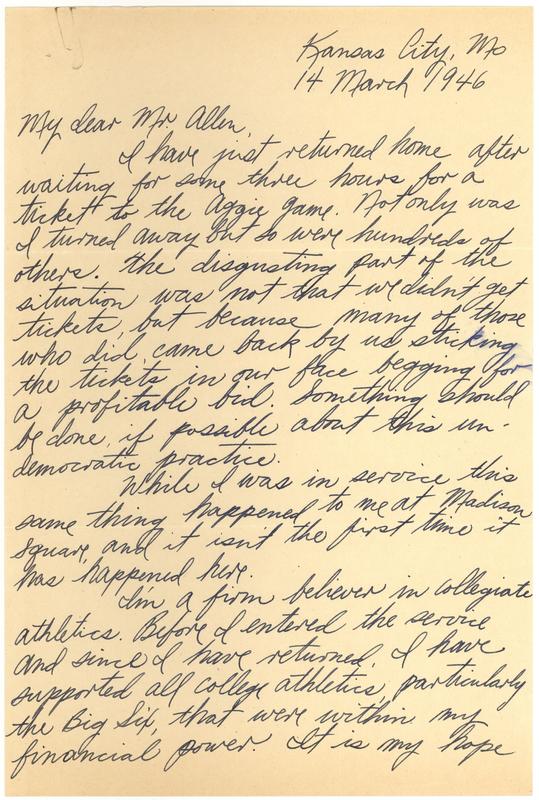 Kansas City, Mo
14 March 1946
My dear Mr. Allen,
I have just returned home after
waiting for some three hours for a
ticket to the Aggie game. Not only was
I turned away but so were hundreds of
others. The disgusting part of the
situation was not that we didn't get
tickets, but because many of those
who did, came back by us sticking
the tickets in our face begging for
a profitable bid. Something should
be done, if possible about this un-
democratic practice.
While I was in service this
same thing happened to me at Madison
Square, and it isn't the first time it
has happened here.
I'm a firm believer in collegiate
athletics. Before I entered the service
and since I have returned, I have
supported all college athletics, particularly
the Big Six, that were within my
financial power. It is my hope